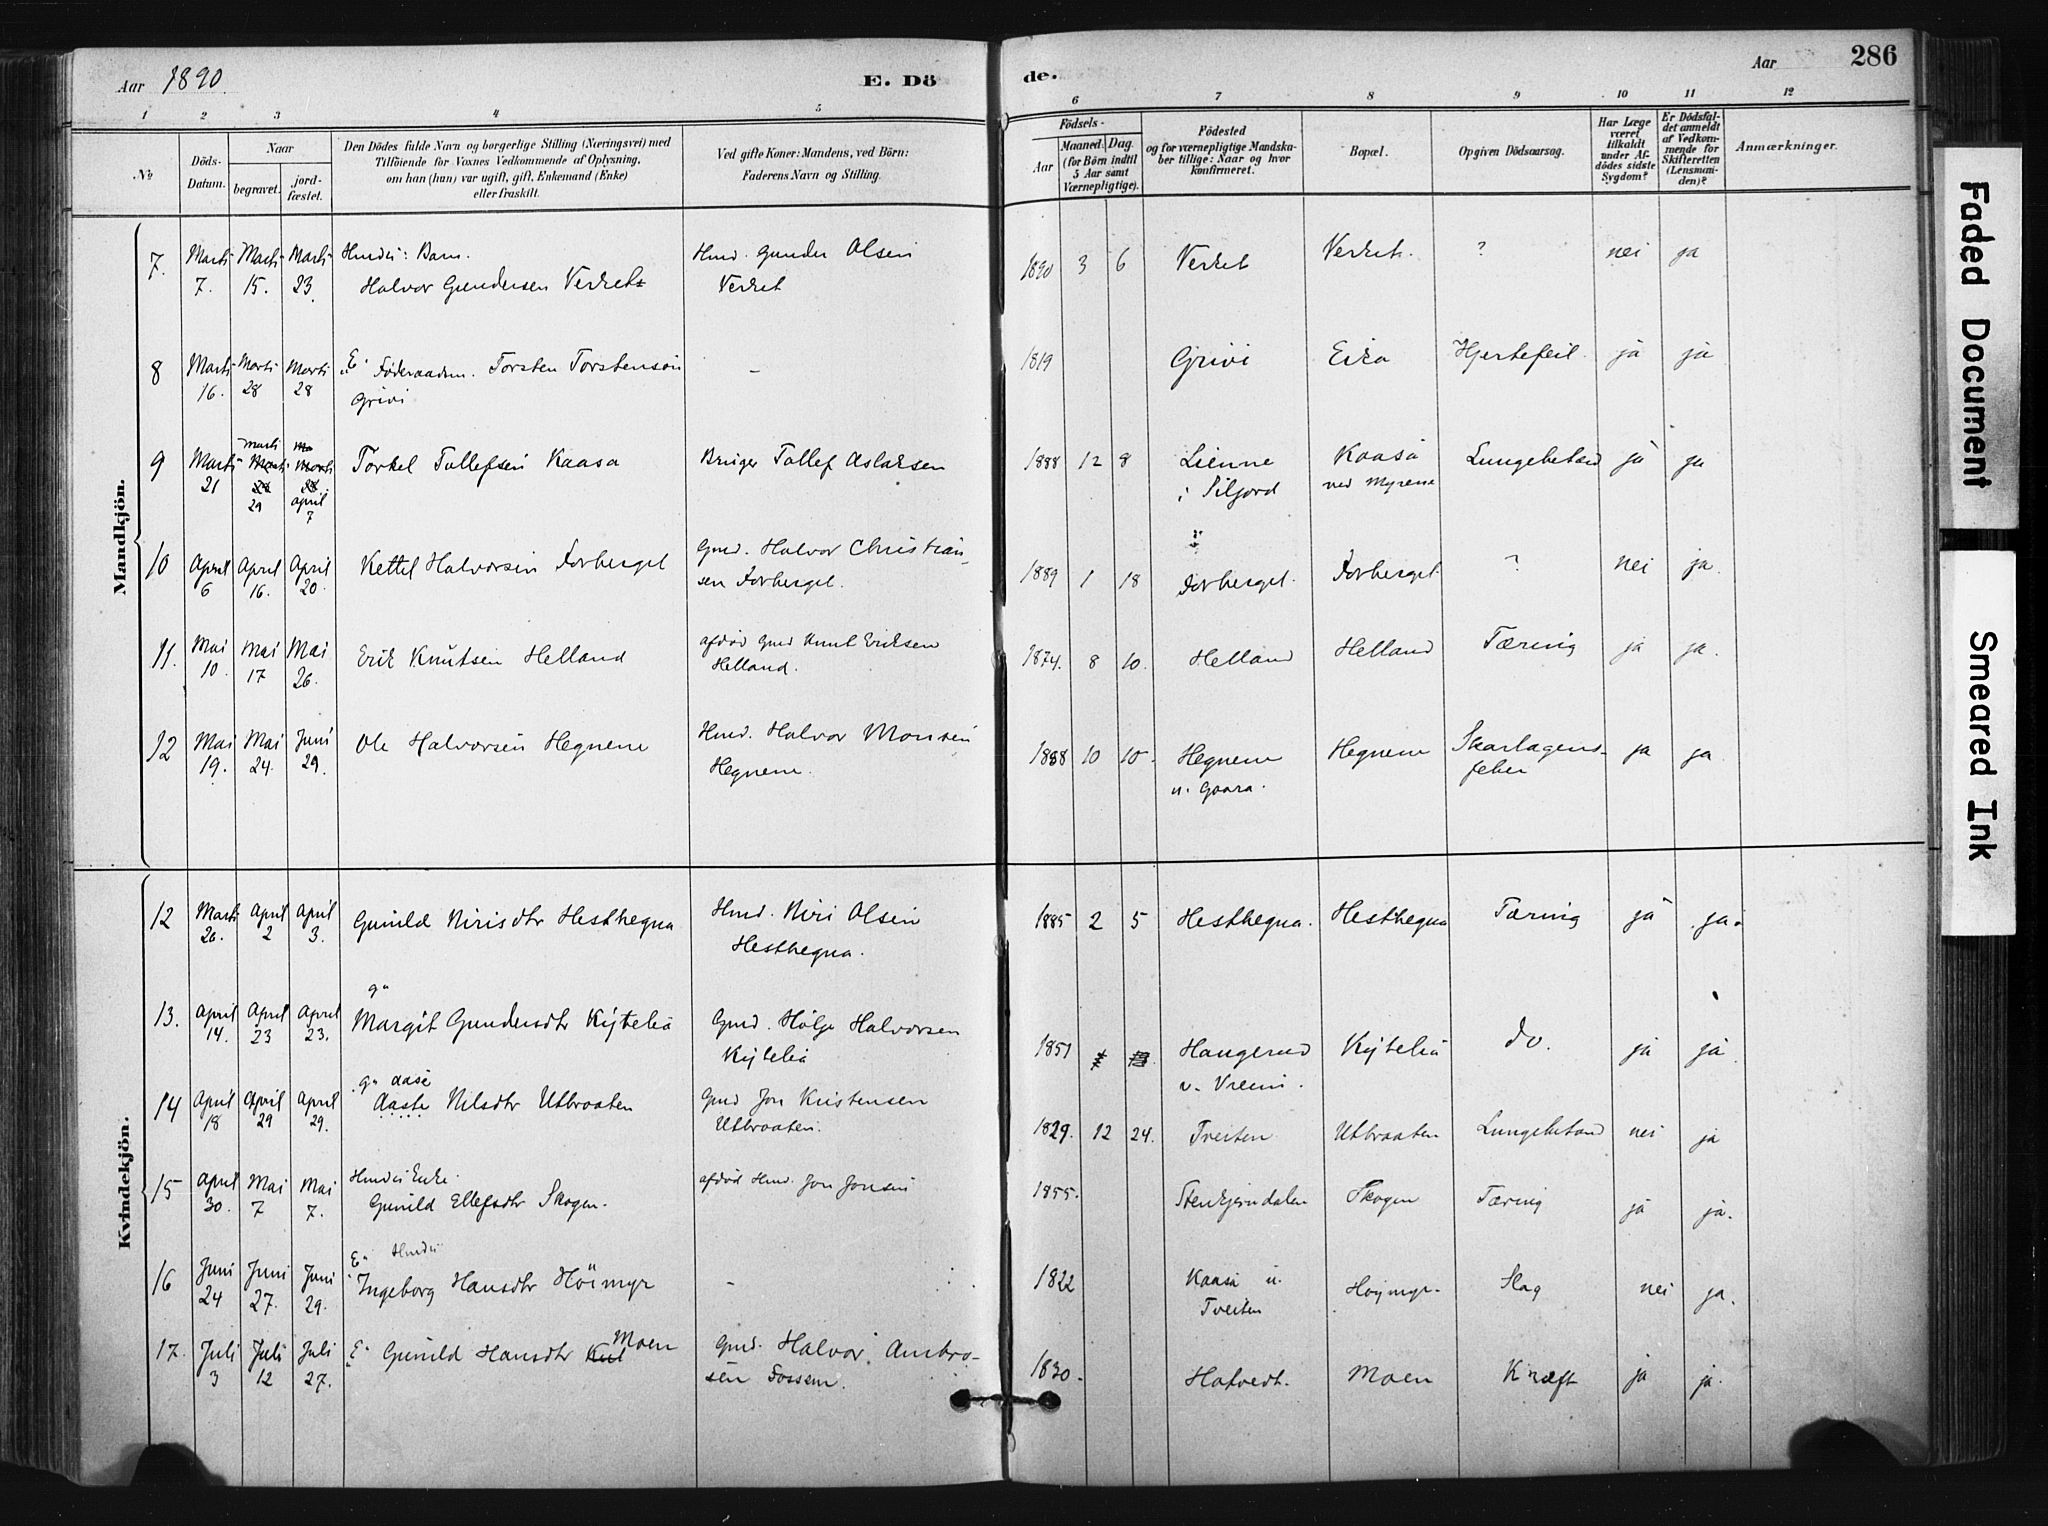 Aar 1890.
E. Dö
de.
Aar
286
1 2 3 4 5 6 7 8 9 10 11 12
No
Döds-
Datum.
Naar
begravet.
jord-
fæstet.
Den Dödes fulde Navn og borgerlige Stilling (Næringsvei) med
Tilföiende for Voxnes Vedkommende af Oplysning,
om han (hun) var ugift, gift, Enkemand (Enke)
eller fraskilt.
Ved gifte Koner: Mandens, ved Börn:
Faderens Navn og Stilling.
Födsels-
Aar
Maaned. Dag.
(for Börn indtil
5 Aar samt
Værnepligtige).
Födested
og for værnepligtige Mandska-
ber tillige: Naar og hvor
konfirmeret.
Bopæl.
Opgiven Dödsaarsag.
Har Læge
været
tilkaldt
under Af-
dödes sidste
Sygdom?
Er Dödsfal-
det anmeldt
af Vedkom-
mende for
Skifteretten
(Lensman-
den)?
Anmærkninger.
Mandkjön.
7. Marts 7. Marts 15. Marts 23. Hmds: Barn.
Halvor Gundersen Verket
Hmd. Gunder Olsen
Verket
1890 3 6 Verket Verket. ? nei ja
8 Marts 16. Marts 28 Marts 28 E. Föderaadsm. Torsten Torstensen
Grivi
–
1819 Grivi Eika Hjertefeil. ja ja
9 Marts 21 Marts 29 april 7 Torkel Tollefsen Kaasa
Bruger Tollef Aslaksen
1888 12 8 Lienne
i Siljord
Kaasa
ved Myrene
Lungebetænd ja ja
10 April 6 April 16. April 20. Kettel Halvorsen Forberget
Gmd. Halvor Christian-
sen Forberget.
1889 1 18 Forberget. Forberget. ? nei ja.
11. Mai 10. Mai 17 Mai 26. Erik Knutsen Helland
afdöd Gmd Knut Eriksen
Helland.
1874. 8 10. Helland Helland Tæring ja ja.
12 Mai 19. Mai 24. Juni 29. Ole Halvorsen Hegnene
Hmd. Halvor Monsen
Hegnene.
1888 10 10. Hegnene
u. Gaara.
Hegnene
Skarlagens-
feber
ja ja
Kvindekjön.
12 Marts 26. April 2 April 3. Gunild Nirisdtr Hesthegna
Hmd. Niri Olsen
Hesthegna.
1885 2 5 Hesthegna. Hesthegna Tæring ja ja.
13. April 14. April 23 April 23. g"
Margit Gundersdtr Kytelia
Gmd. Hölje Halvorsen
Kytelia
1851 Haugerud
u. Vreim.
Kytelia do. ja ja.
14 April 18 April 29 April 29. g" aase
Aaste Nilsdtr Utbraaten
Gmd Jon Kristensen
Utbraaten.
1829. 12 24. Tveiten Utbraaten Lungebetænd nei ja
15 April 30. Mai 7 Mai 7. Hmds Enke.
Gunild Ellefsdtr Skogen.
afdöd Hmd. Jon Jonsen
1855. Stenkjerndalen Skogen Tæring ja ja.
16 Juni 24 Juni 27. Juni 29. E" Hmds
Ingeborg Hansdtr Höimyr
–
1822 Kaasa u.
Tveiten
Höymyr. Slag nei ja.
17. Juli 3 Juli 12 Juli 27. E" Gunild Hansdtr Moen
Gmd. Halvor Ambro-
sen Fossem.
1830. Hatvedt. Moen Kræft ja ja.
Faded Document
Smeared Ink